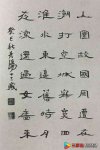 山圍故國周遭在
潮打空城寂寞回
淮水東邊舊時月
夜深還過女牆來